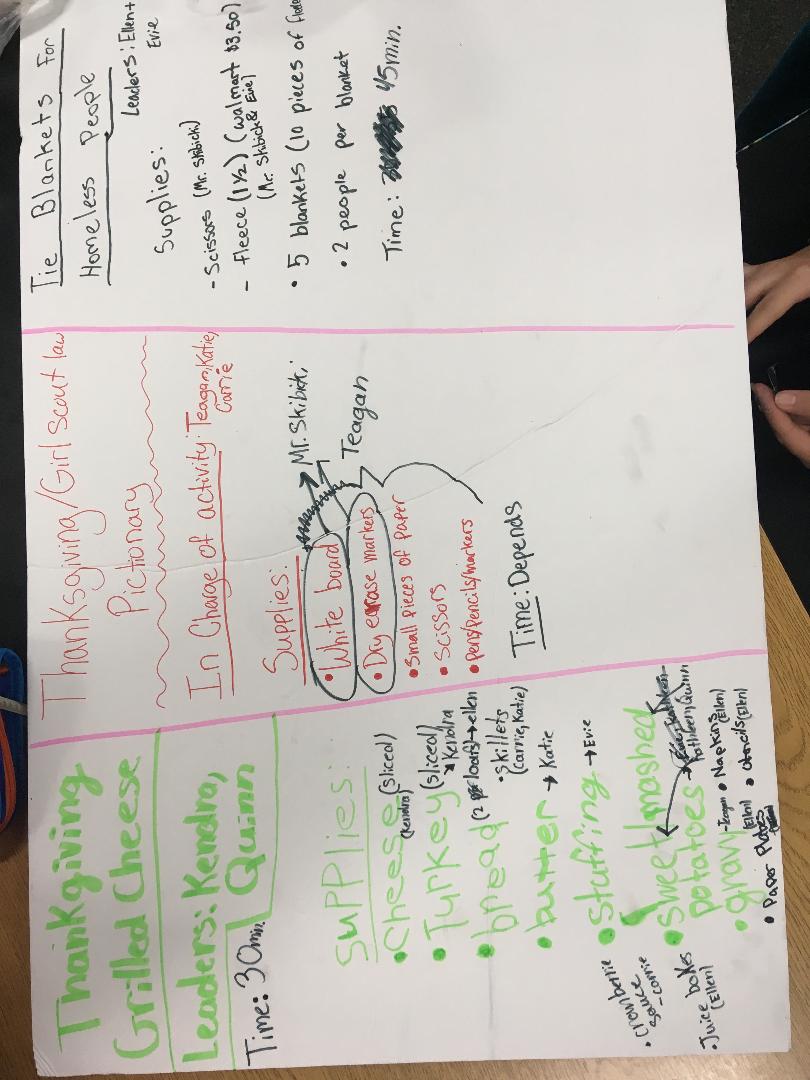 Thankgiving
Grilled Cheese
Leaders: Kendra,
Quinn
Time: 30min.
Supplies:
• Cheese (sliced)
(Kendra)
• Turkey (sliced)
Kendra
• bread (2 loafs) → ellen
• skillets
(carrie, Katie)
• butter → Katie
• Stuffing → Evie
• sweet/mashed
potatoes
Kathleen/Quinn
• gravy - Teagan
• Napkins (Ellen)
• Utencils (Ellen)
• Paper Plates (Ellen)
• Cranberrie
sauce - carrie
• Juice boxes
(Ellen)
Thanksgiving/Girl Scout law
Pictionary
In Charge of activity: Teagan, Katie,
Carrie
Supplies:
• White board
Mr. Skibicki
• Dry earase markers
Teagan
• Small pieces of Paper
• Scissors
• Pens/Pencils/markers
Time: Depends
Tie Blankets For
Homeless People
Leaders: Ellen +
Evie
Supplies:
- Scissors (Mr. Skibicki)
- fleece (1 ½) (walmart $3.50)
(Mr. Skibicki & Evie)
• 5 blankets (10 pieces of
• 2 people per blanket
Time: 45min.